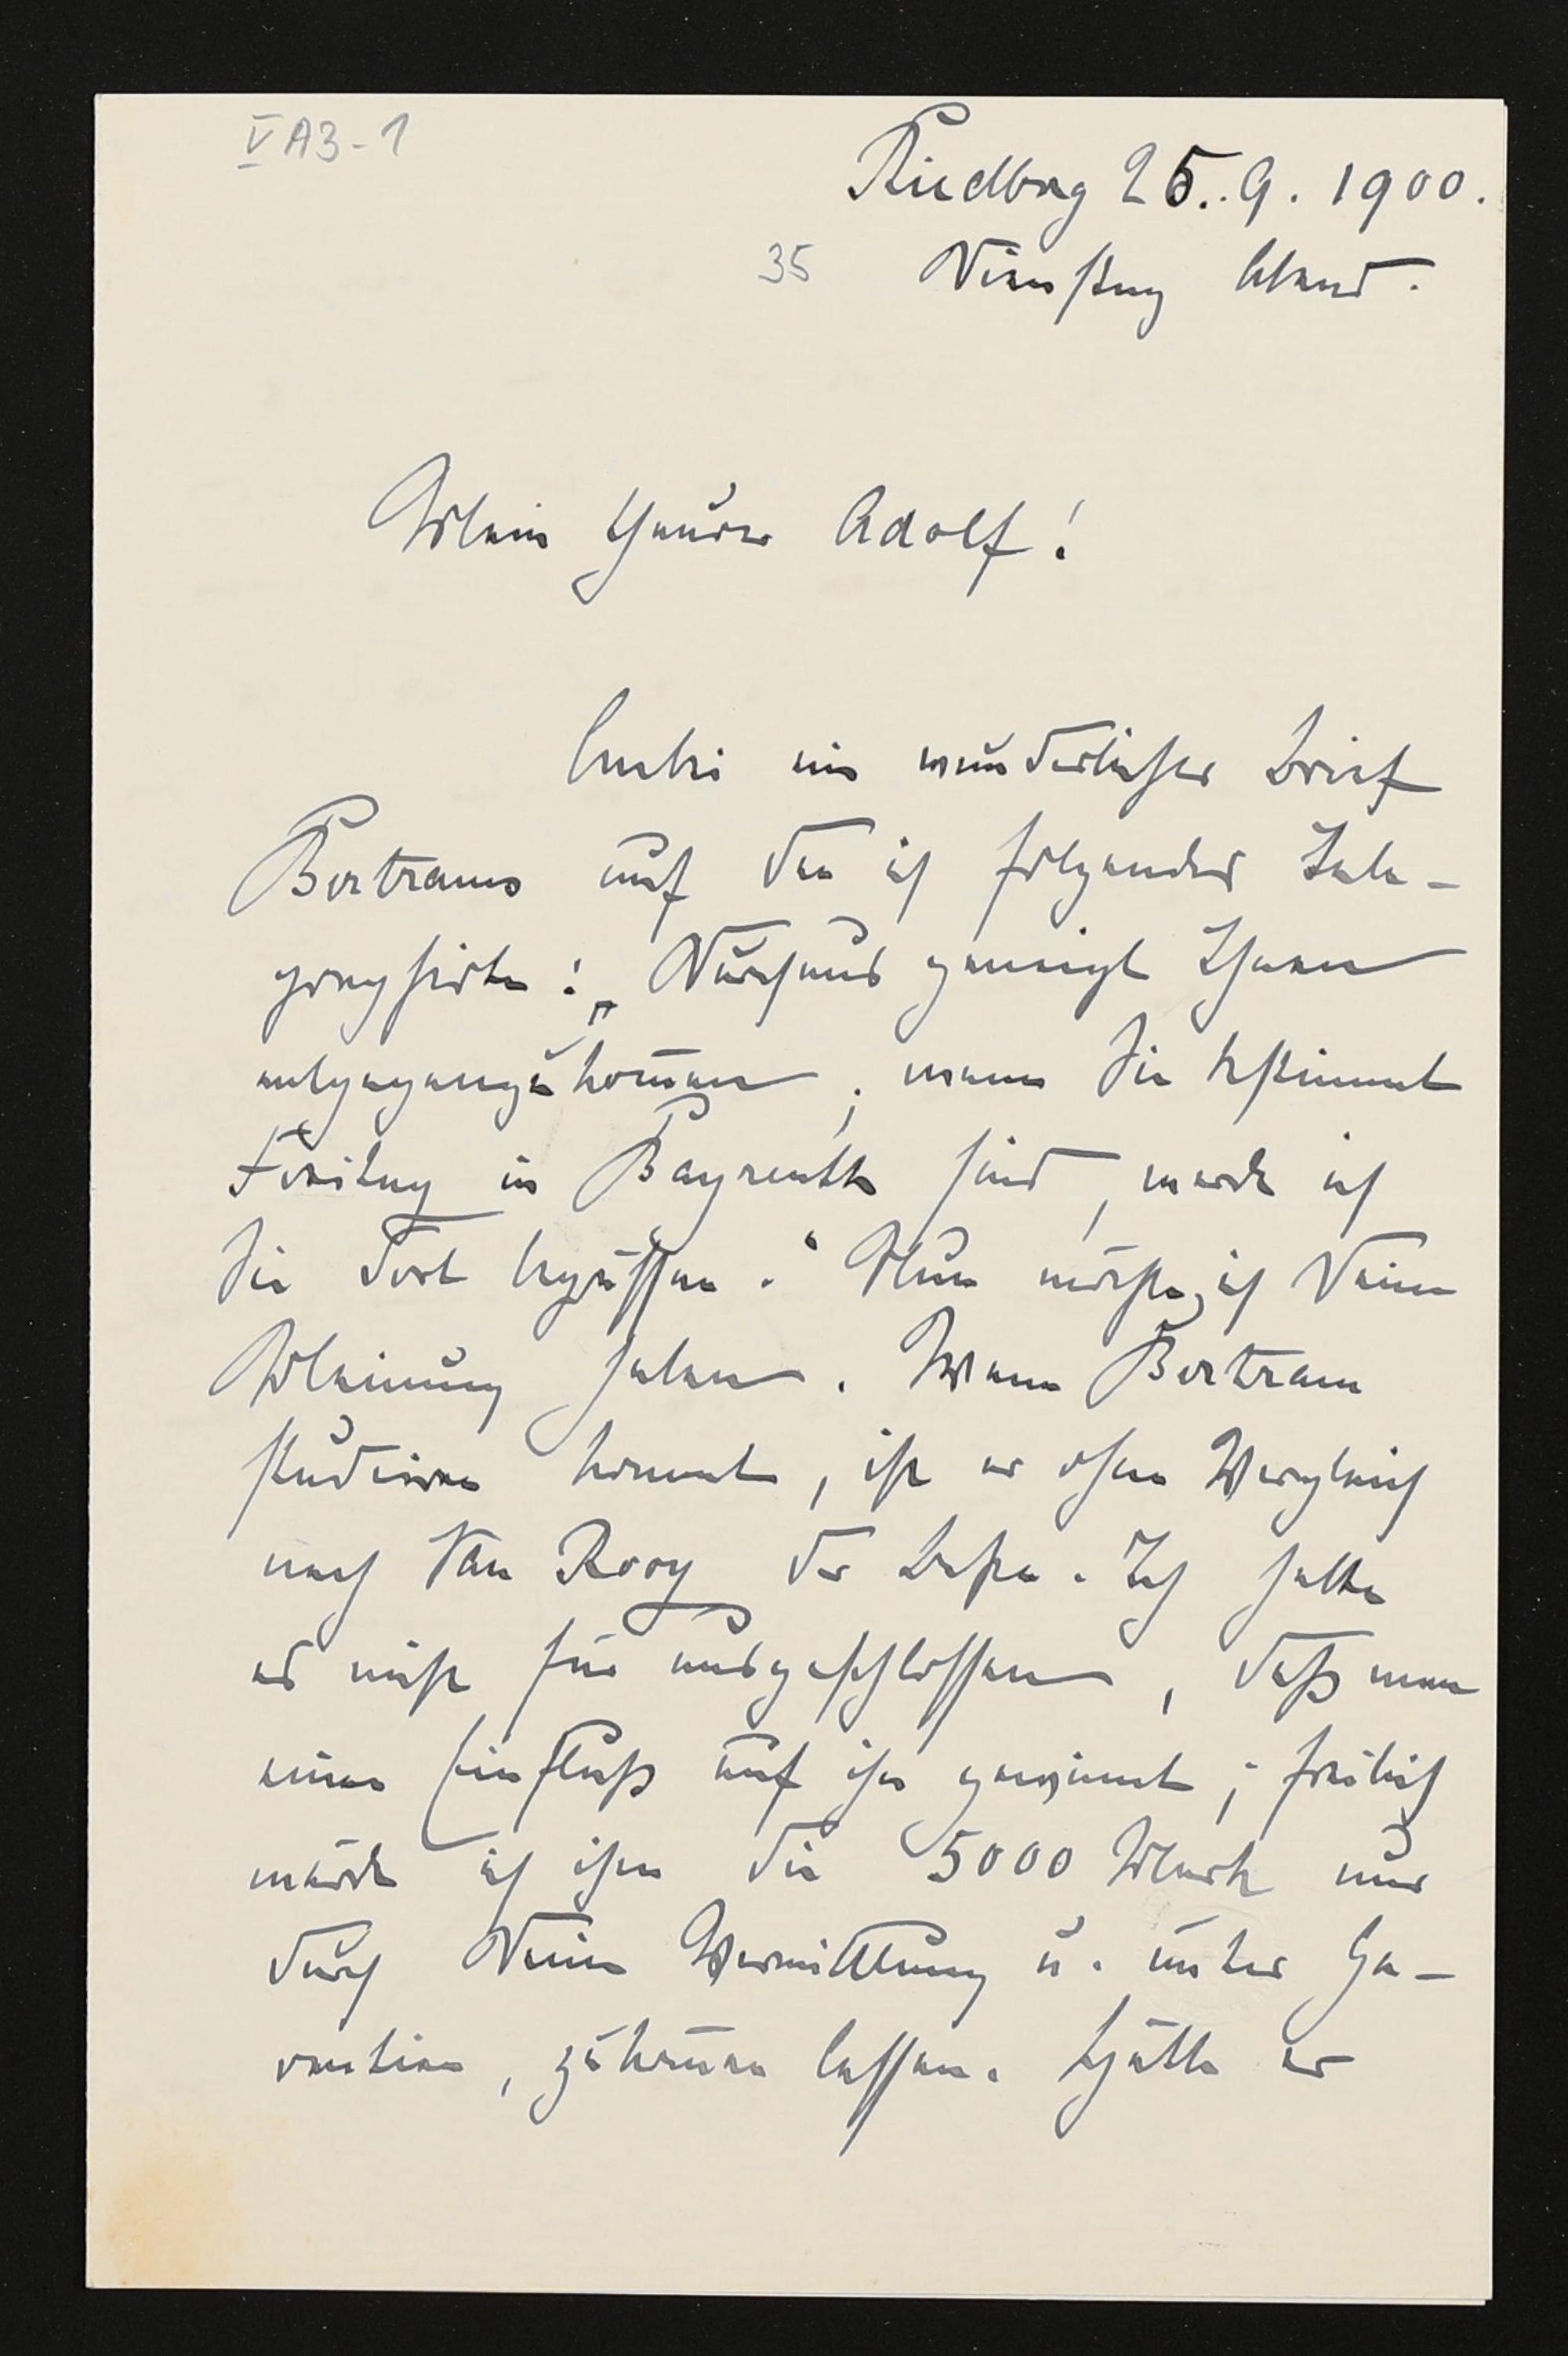 V A3-1
Riedbrg 25..9. 1900.
35 Dienstag Abend.
Mein theurer Adolf!
Anbei ein wunderlicher Brief
Bertrams auf den ich folgendes Tele-
graphirte: „Durchaus geneigt Ihnen
entgegenzukom̅en, wenn Sie bestimmt
Freitag in Bayreuth sind, werde ich
Sie dort begrüssen.“ Nun möchte ich Deine
Meinung haben. Wenn Bertram
studieren kommt, ist er ohne Vergleich
nach Van Rooy der Beste. Ich halte
es nicht für ausgeschlossen, daß man
einen Einfluß auf ihn gewinnt; freilich
würde ich ihm die 5000 Mark nur
durch Deine Vermittlung u. unter Ga-
rantien, zukom̅en lassen. Hätte er